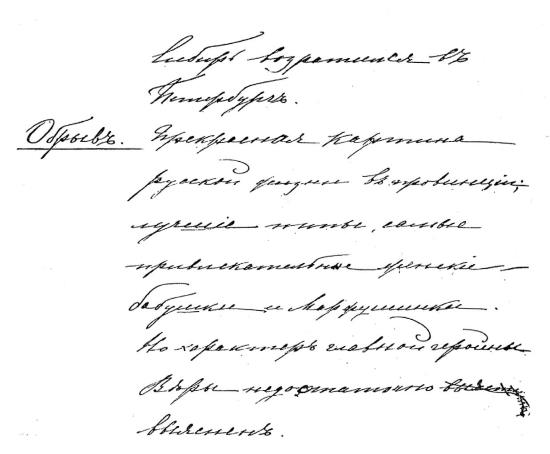 Сибирь возратился въ
Петербургъ.
Обрывъ. Прекрасная картина
руской жизни въ провинціи;
лучшіе типы, самые
привлекательные женскіе —
бабушки и Марфушиньки.
Но характеръ главной героины
Вѣры недостаточно
выясненъ.